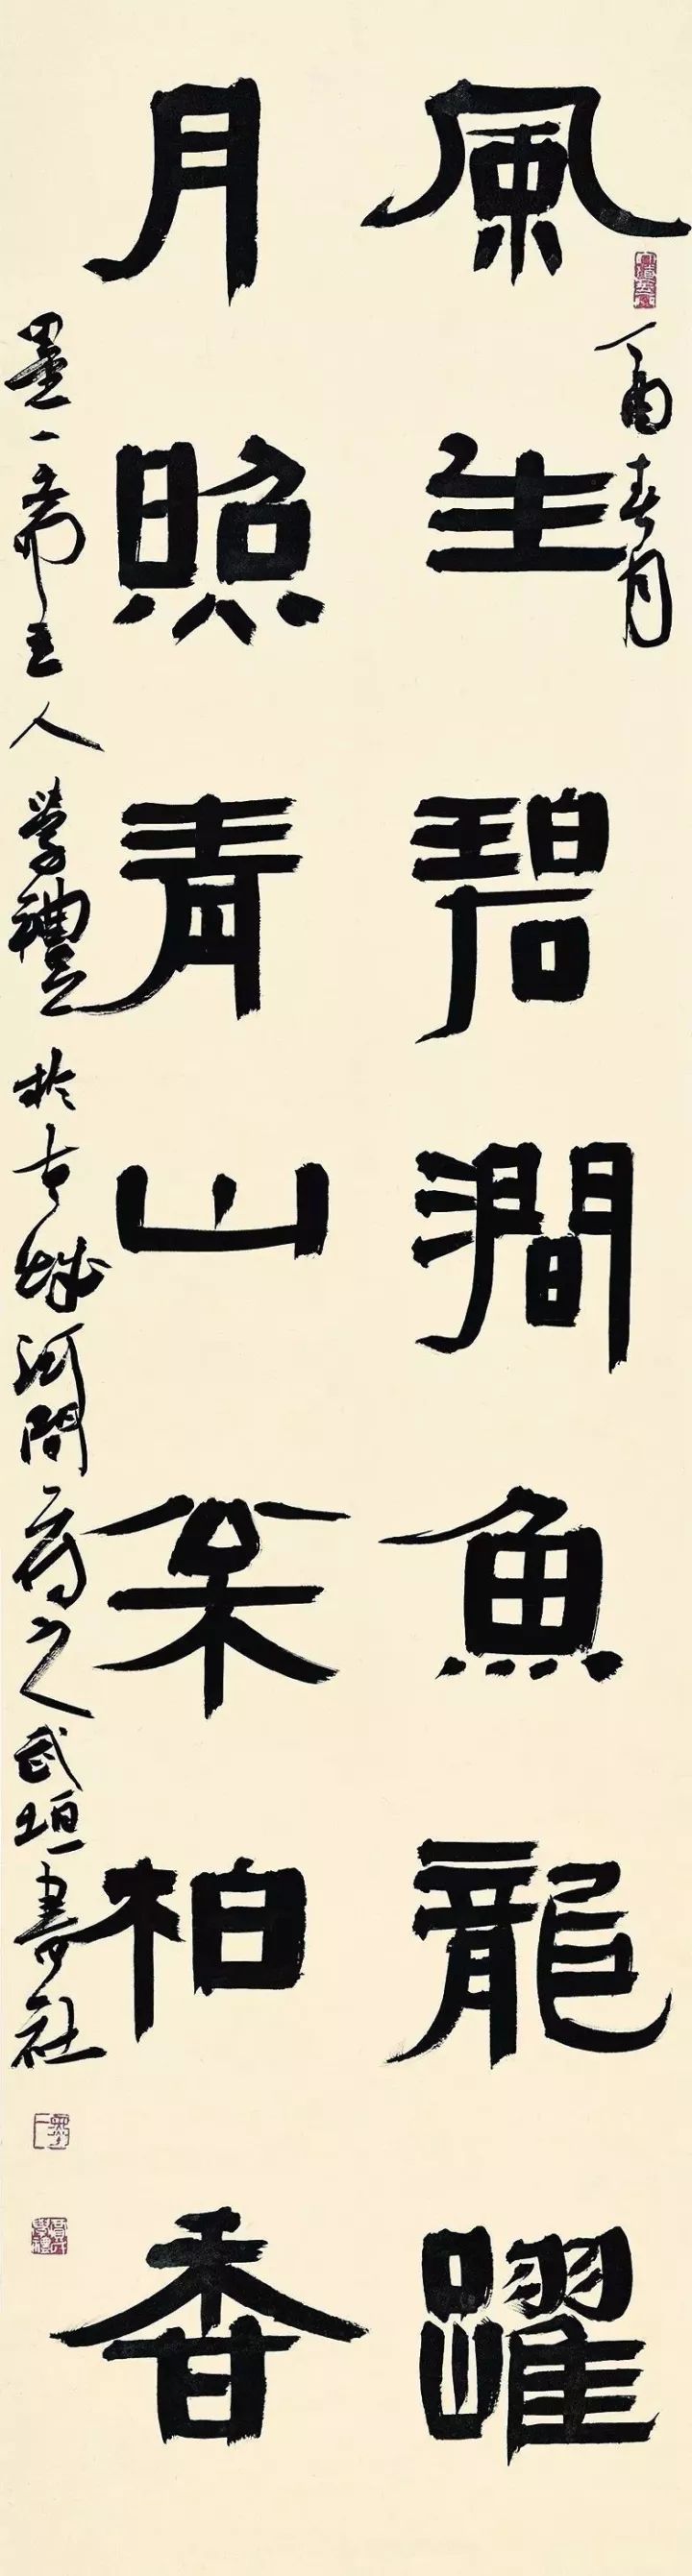 丁酉春月
風生碧澗魚龍躍
月照青山松柏香
墨一斋主人學禮於古城河間府之武垣書社